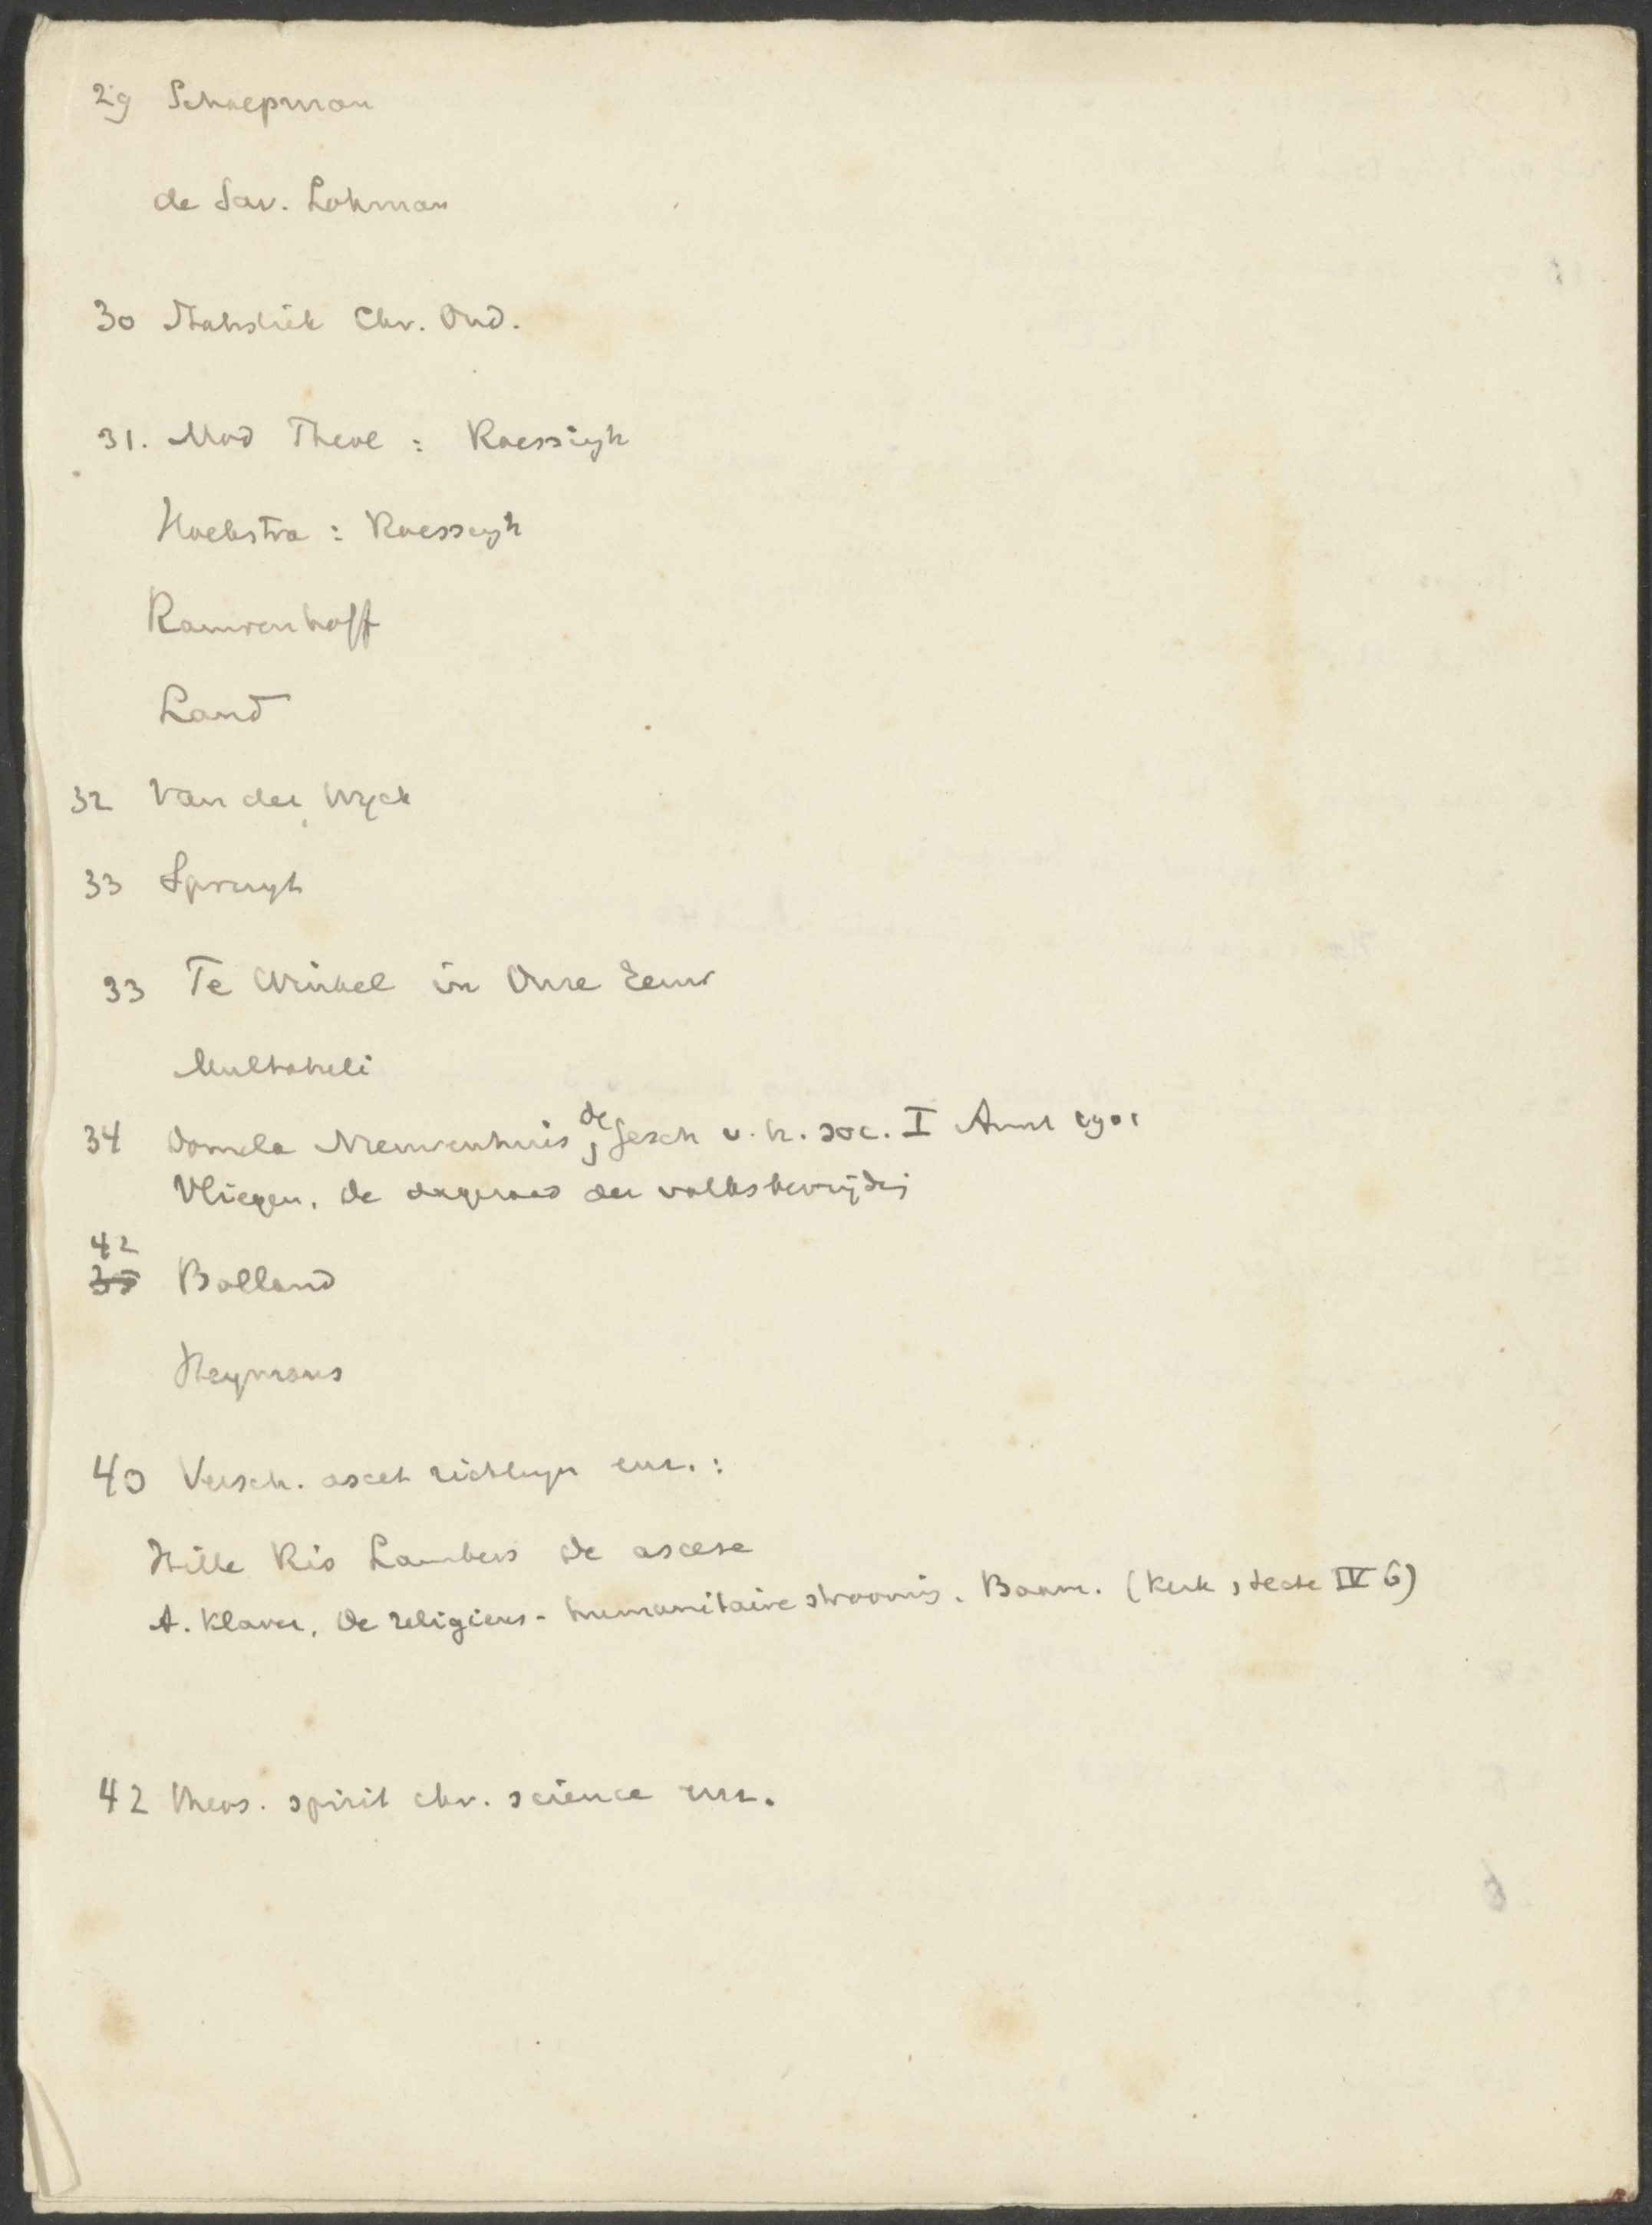 29 Schaepman
de Sav. Lohman
30 Statistiek Chr. Ond.
31. Mod Theol : Roessingh
Hoekstra : Roessingh
Rauwenhoff
Land
32 Van der Wyck
33 Spruyt
33 Te Winkel in Onze Eeuw
Multatuli
34 Domela Nieuwenhuis, de Gesch v. h. soc. I Amst 1901
Vliegen, De dageraad der volksbevrijdg
42
35 Bolland
Heymans
40 Versch. ascet richtingen enz. :
Hille Ris Lambers De ascese
A. Klaver, De religieus-humanitaire stroomg. Baarn. (Kerk, secte IV 6)
42 theos. spirit chr. science enz.